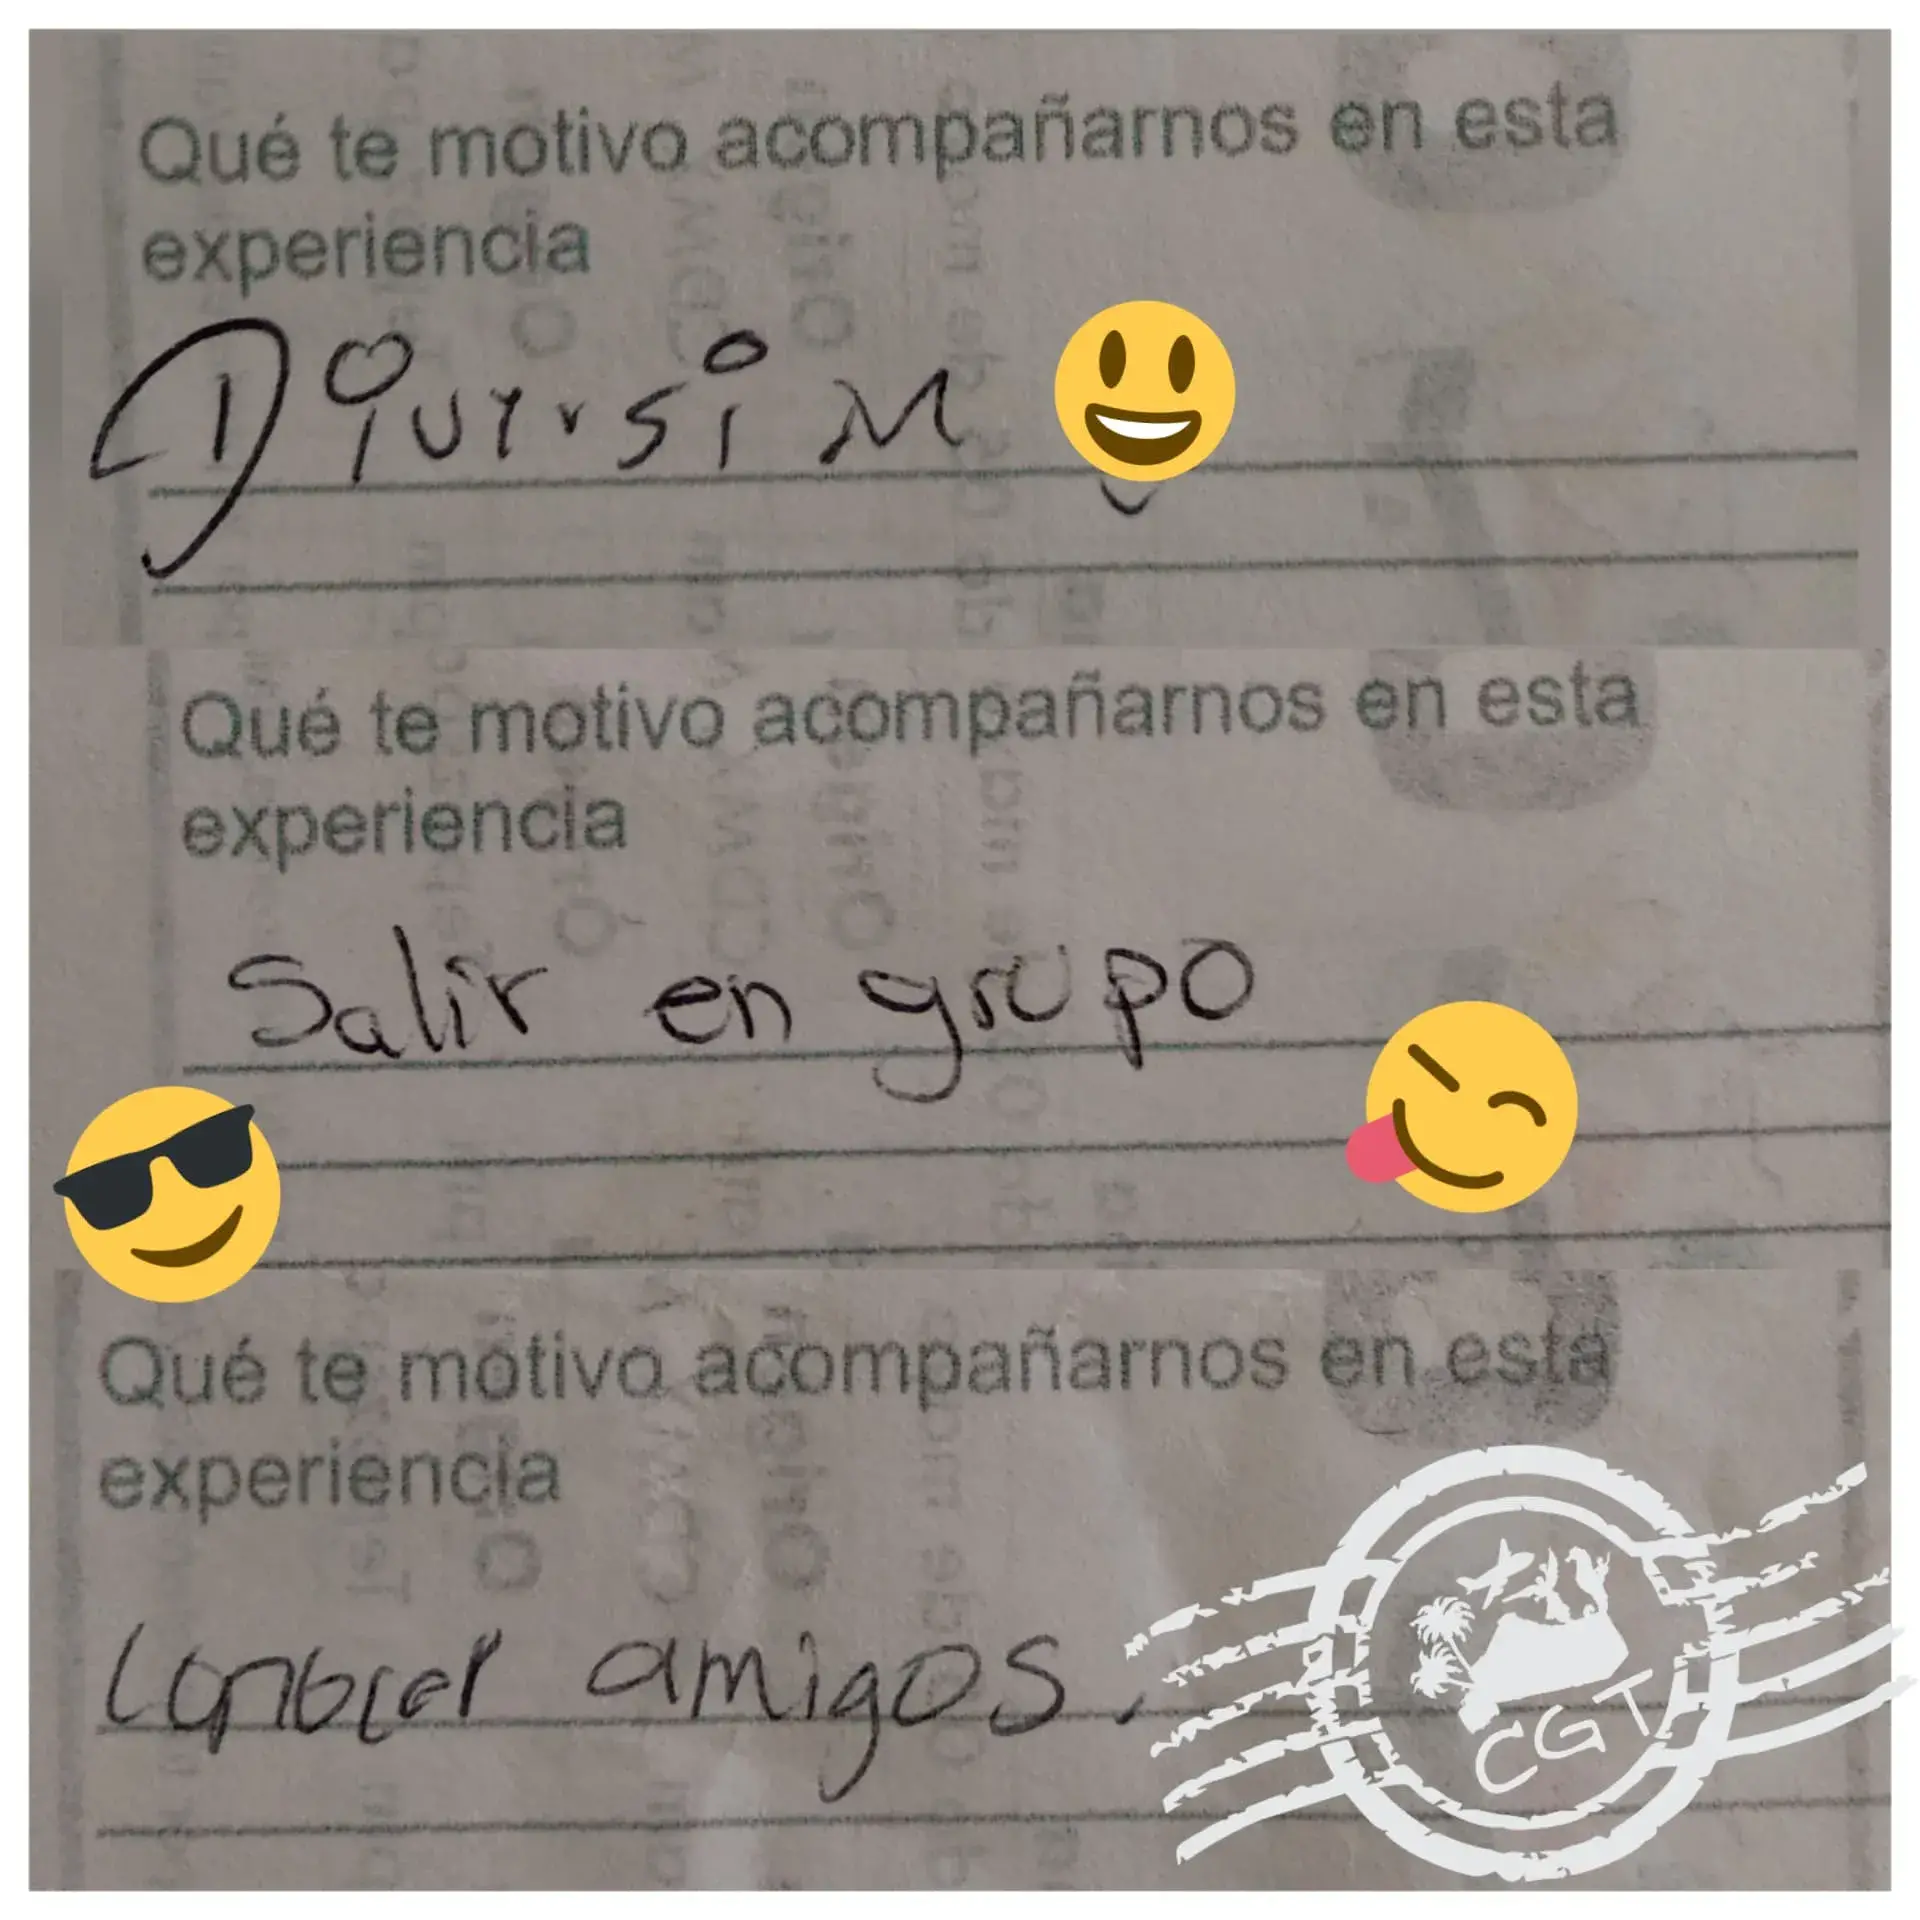 Qué te motivo acompañarnos en esta
experiencia
Qué te motivo acompañarnos en esta
experiencia
Salir en grupo
Qué te motivo acompañarnos en esta
experiencia
Conocer amigos.
CGT